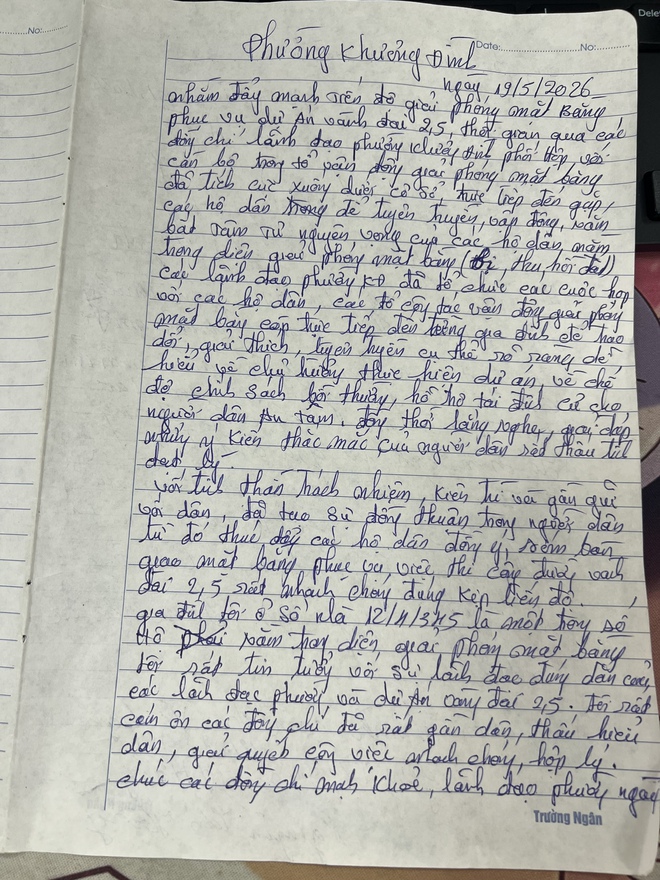 No:
Delete
Date: No:
Phường Khương Đình
ngày 19/5/2026
nhằm đẩy mạnh tiến độ giải phóng mặt Bằng
phục vụ dự Án vành đai 2,5, thời gian qua các
đồng chí lãnh đạo phường Khương Đình phối hợp với
cán bộ trong tổ vận động giải phóng mặt bằng
đã tích cực xuống dưới cơ sở trực tiếp đến gặp,
các hộ dân trong để tuyên truyền, vận động, nắm
bắt tâm tư nguyện vọng của các hộ dân, nằm
trong diện giải phóng mặt bằng (bị thu hồi đất)
các lãnh đạo phường KĐ đã tổ chức các cuộc họp
với các hộ dân, các tổ công tác vận động giải phóng
mặt bằng trực tiếp đến từng gia đình để trao
đổi, giải thích, tuyên truyền cụ thể rõ ràng dễ
hiểu về chủ trương thực hiện dự án, về chế
độ chính sách bồi thường, hỗ trợ tái định cư cho
người dân An tâm. đồng thời lắng nghe, giải đáp
những ý kiến thắc mắc của người dân rất thấu tình
đạt lý.
với tinh thần trách nhiệm, kiên trì và gần gũi
với dân, đã tạo sự đồng thuận trong người dân
từ đó thúc đẩy các hộ dân đồng ý, sớm bàn
giao mặt bằng phục vụ việc thi công đường vành
đai 2,5 rất nhanh chóng đúng kịp tiến độ.
gia đình tôi ở số nhà 12/4/345 là một trong số
Hộ nằm trong diện giải phóng mặt bằng
tôi rất tin tưởng với sự lãnh đạo đúng đắn của
các lãnh đạo phường và dự Án vành đai 2,5. tôi rất
cảm ơn các đồng chí đã rất gần dân, thấu hiểu
dân, giải quyết công việc nhanh chóng, hợp lý.
chúc các đồng chí mạnh khoẻ, lãnh đạo phường ngày
Trường Ngân